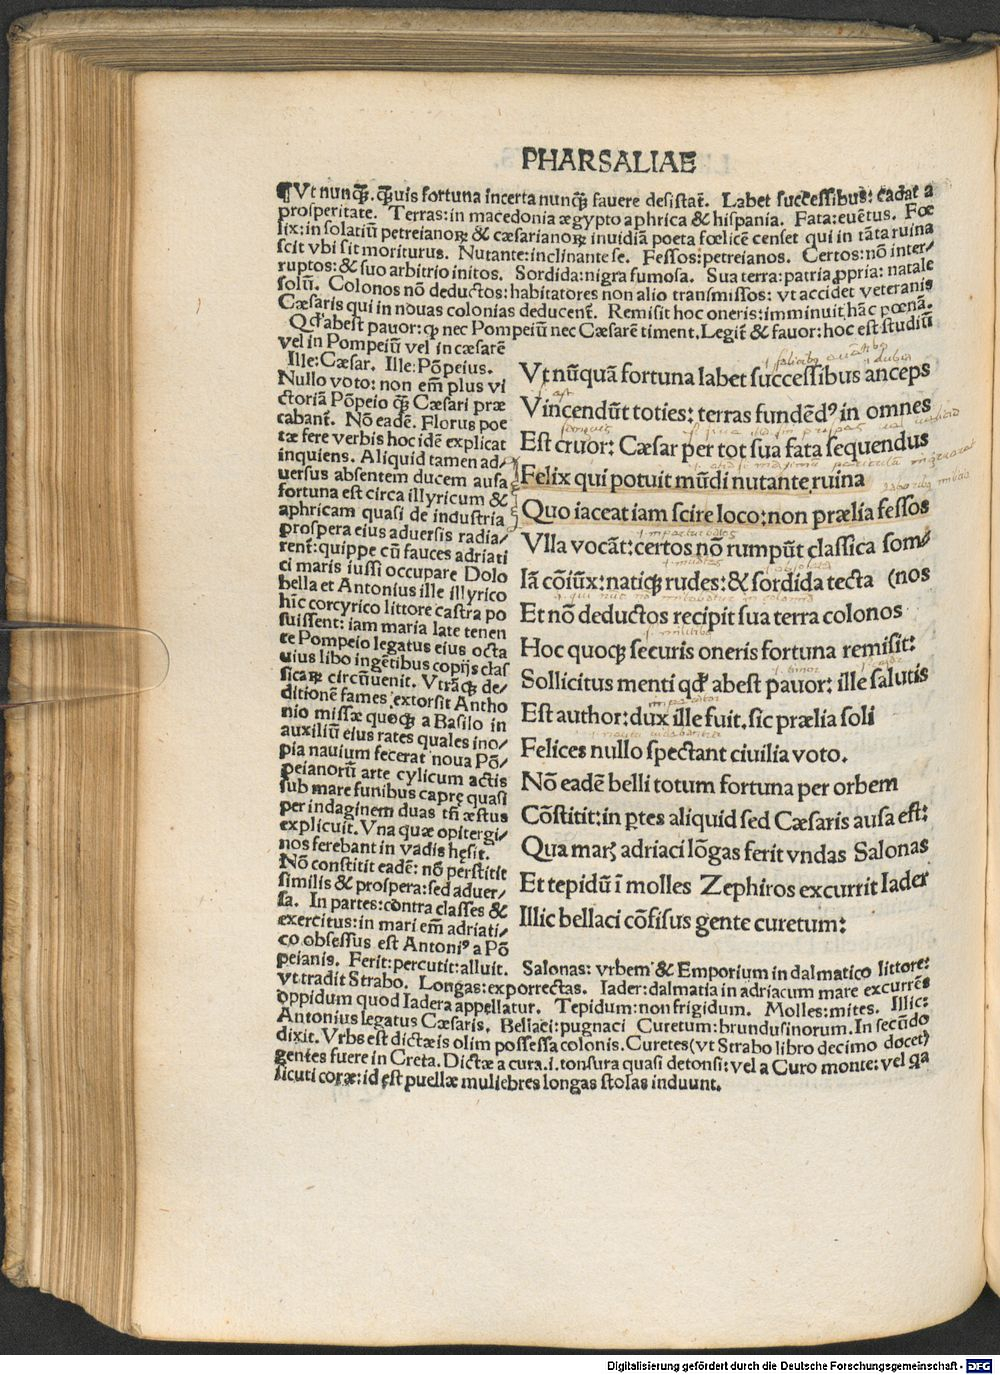 PHARSALIAE
¶Vt nunq̄. q̄uis fortuna incerta nunq̄ fauere desistat. Labet successibus: cadat a
prosperitate. Terras: in macedonia ægypto aphrica & hispania. Fata: euētus. Fœ
lix: in solatiū petreianoꝝ & cæsarianoꝝ inuidiā poeta fœlicē censet qui in tāta ruina
scit vbi sit moriturus. Nutante: inclinante se. Fessos: petreianos. Certos: nō inter/
ruptos: & suo arbitrio initos. Sordida: nigra fumosa. Sua terra: patria ꝓpria: natale
solū. Colonos nō deductos: habitatores non alio transmissos: vt accidet veteranis
Cæsaris qui in nouas colonias deducent̄. Remisit hoc oneris: imminuit hāc pœnā.
Qd̄ abest pauor: ꝙ nec Pompeiū nec Cæsarē timent. Legit̄ & fauor: hoc est studiū
vel in Pompeiū vel in cæsarē
Ille: Cæsar. Ille: Pōpeius.
Nullo voto: non em̄ plus vi
ctoriā Pōpeio q̄ Cæsari præ
cabant̄. Nō eadē. Florus poe
tæ fere verbis hoc idē explicat
inquiens. Aliquid tamen ad/
uersus absentem ducem ausa
fortuna est circa illyricum &
aphricam quasi de industria
prospera eius aduersis radia/
rent̄: quippe cū fauces adriati
ci maris iussi occupare Dolo
bella et Antonius ille illyrico
hīc corcyrico littore castra po
suissent: iam maria late tenen
te Pompeio legatus eius octa
uius libo ingētibus copijs clas
sicaꝝ circūuenit. Vtrāq̄ de/
ditionē fames extorsit Antho
nio missæ quoq̄ a Basilo in
auxiliū eius rates quales ino/
pia nauium fecerat noua Pō/
peianorū arte cylicum actis
sub mare funibus captę quasi
per indaginem duas tn̄ æstus
explicuit. Vna quæ opitergi/
nos ferebant in vadis hęsit.
Nō constitit eadē: nō perstitit
similis & prospera: sed aduer/
sa. In partes: contra classes &
exercitus: in mari em̄ adriati/
co obsessus est Antoniꝰ a Pō
peianis. Ferit: percutit: alluit. Salonas: vrbem & Emporium in dalmatico littore:
Vt nūquā fortuna labet successibus anceps
Vincendūt toties: terras fundēdꝰ in omnes
Est cruor: Cæsar per tot sua fata sequendus
Felix qui potuit mūdi nutante ruina
Quo iaceat iam scire loco: non prælia fessos
Vlla vocāt: certos nō rumpūt classica som/
Iā cōiūx: natiq̄ rudes: & sordida tecta (nos
Et nō deductos recipit sua terra colonos
Hoc quoq̄ securis oneris fortuna remisit:
Sollicitus menti qd̄ abest pauor: ille salutis
Est author: dux ille fuit. sic prælia soli
Felices nullo spectant ciuilia voto.
Nō eadē belli totum fortuna per orbem
Cōstitit: in ꝑtes aliquid sed Cæsaris ausa est:
Qua mar̄ adriaci lōgas ferit vndas Salonas
Et tepidū ī molles Zephiros excurrit Iader
Illic bellaci cōfisus gente curetum:
vt tradit Strabo. Longas: exporrectas. Iader: dalmatia in adriacum mare excurrēs
oppidum quod Iadera appellatur. Tepidum: non frigidum. Molles: mites. Illic:
Antonius legatus Cæsaris. Bellaci: pugnaci Curetum: brundusinorum. In secūdo
dixit. Vrbs est dictæis olim possessa colonis. Curetes (vt Strabo libro decimo docet)
gentes fuere in Creta. Dictæ a cura .i. tonsura quasi detonsi: vel a Curo monte: vel qa
sicuti coræ: id est puellæ muliebres longas stolas induunt.
Digitalisierung gefördert durch die Deutsche Forschungsgemeinschaft - DFG